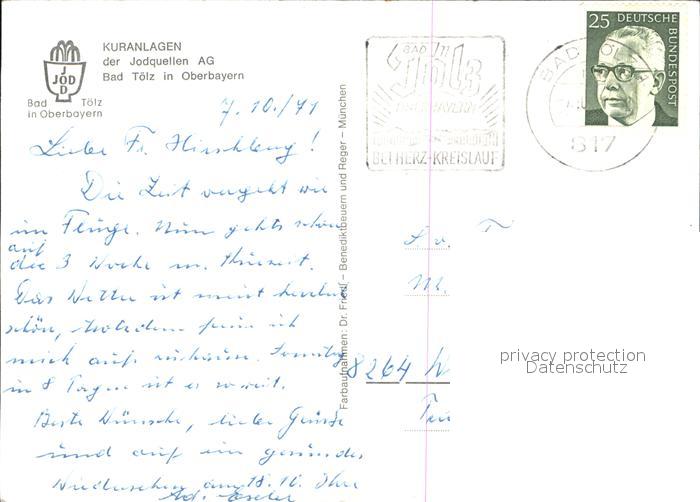 KURANLAGEN
der Jodquellen AG
Bad Tölz in Oberbayern
JOD
Bad Tölz
in Oberbayern
7.10./71
Lieber Fr. Hirschberg!
Die Zeit vergeht wie
im Fluge. Nun gehts schon
auf
die 3 Woche m. Kurzeit.
Das Wetter ist meist herrlich
schön, trotzdem freu ich
mich aufs zuhause. Sonntag
in 8 Tagen ist es so weit.
Beste Wünsche, liebe Grüsse
und auf ein gesundes
Wiedersehen am 18.10. Ihr
Ad.
Farbaufnahmen: Dr. Friedl – Benediktbeuern und Reger – München
BAD
Tölz
BEI HERZ-KREISLAUF
BAD TÖL
817
25 DEUTSCHE
BUNDESPOST
8264 W
privacy protection
Datenschutz